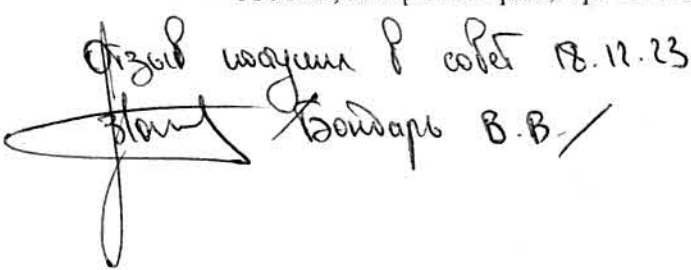 Отзыв поступил в совет 18.12.23
/Бондарь В.В./